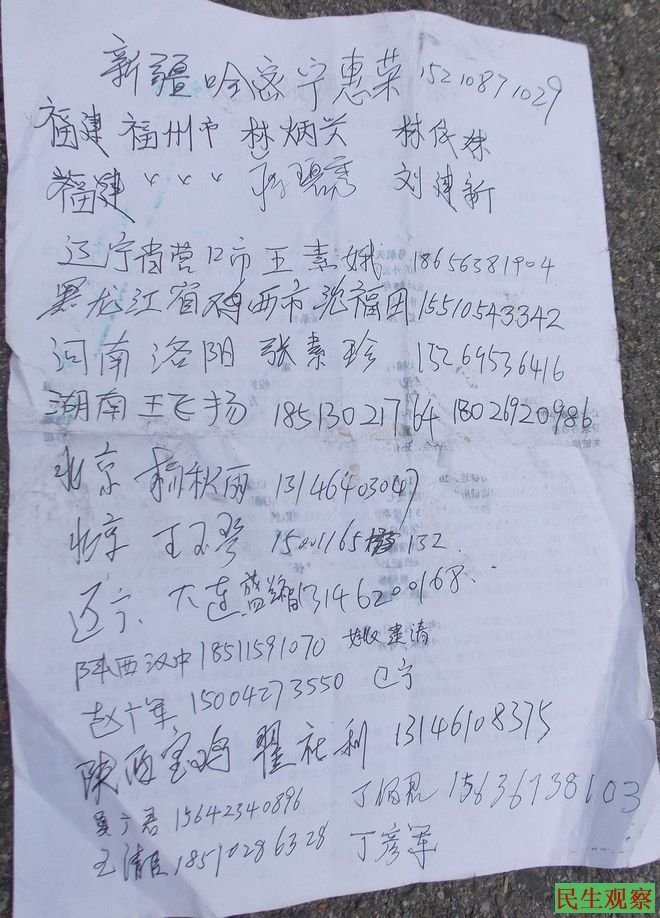 新疆哈密宁惠荣 15210871029
福建福州市 林炳兴 林依妹
福建 〃 〃 〃 碧秀 刘建新
辽宁省营口市王素娥 18656381904
黑龙江省鸡西市沈福田 15510543342
河南洛阳 张素珍 15269536416
湖南王飞扬 18513021764 18026920986
北京 杨秋雨 13146403047
北京 王玉琴 15001165132
辽宁 大连盛 13146200168
陕西汉中 18511591070 姚建清
赵广军 15004273550 辽宁
陕西宝鸡 翟社利 13146108375
夏广君 15642340896 丁 15636738103
王清 18510286328 丁彦军
民生观察